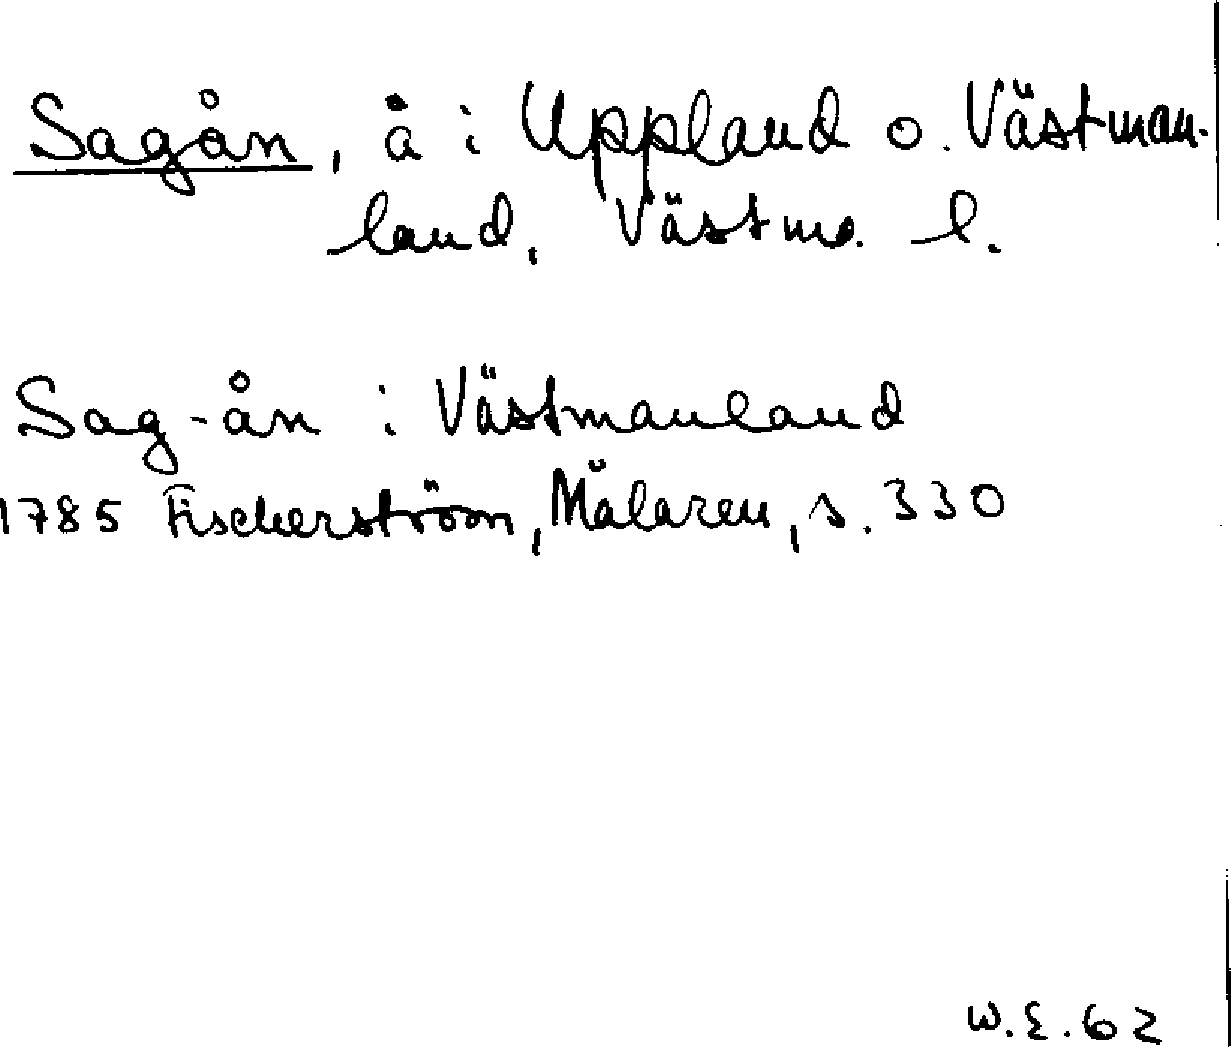 Sagån, å i Uppland o. Västman-
land, Västma. l.
Sag-ån i Västmanland
1785 Fischerström, Mälaren, s. 330
W.E. 62